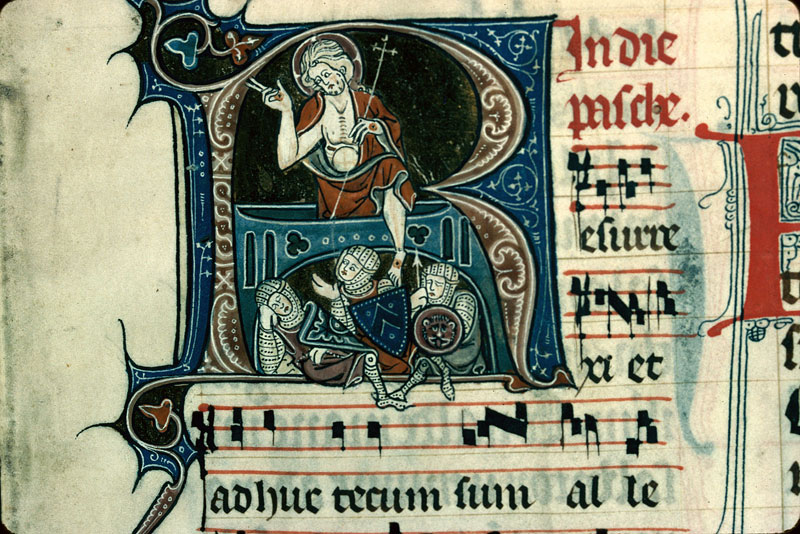 In die
pasche.
Resurre
xi et
adhuc tecum sum al le